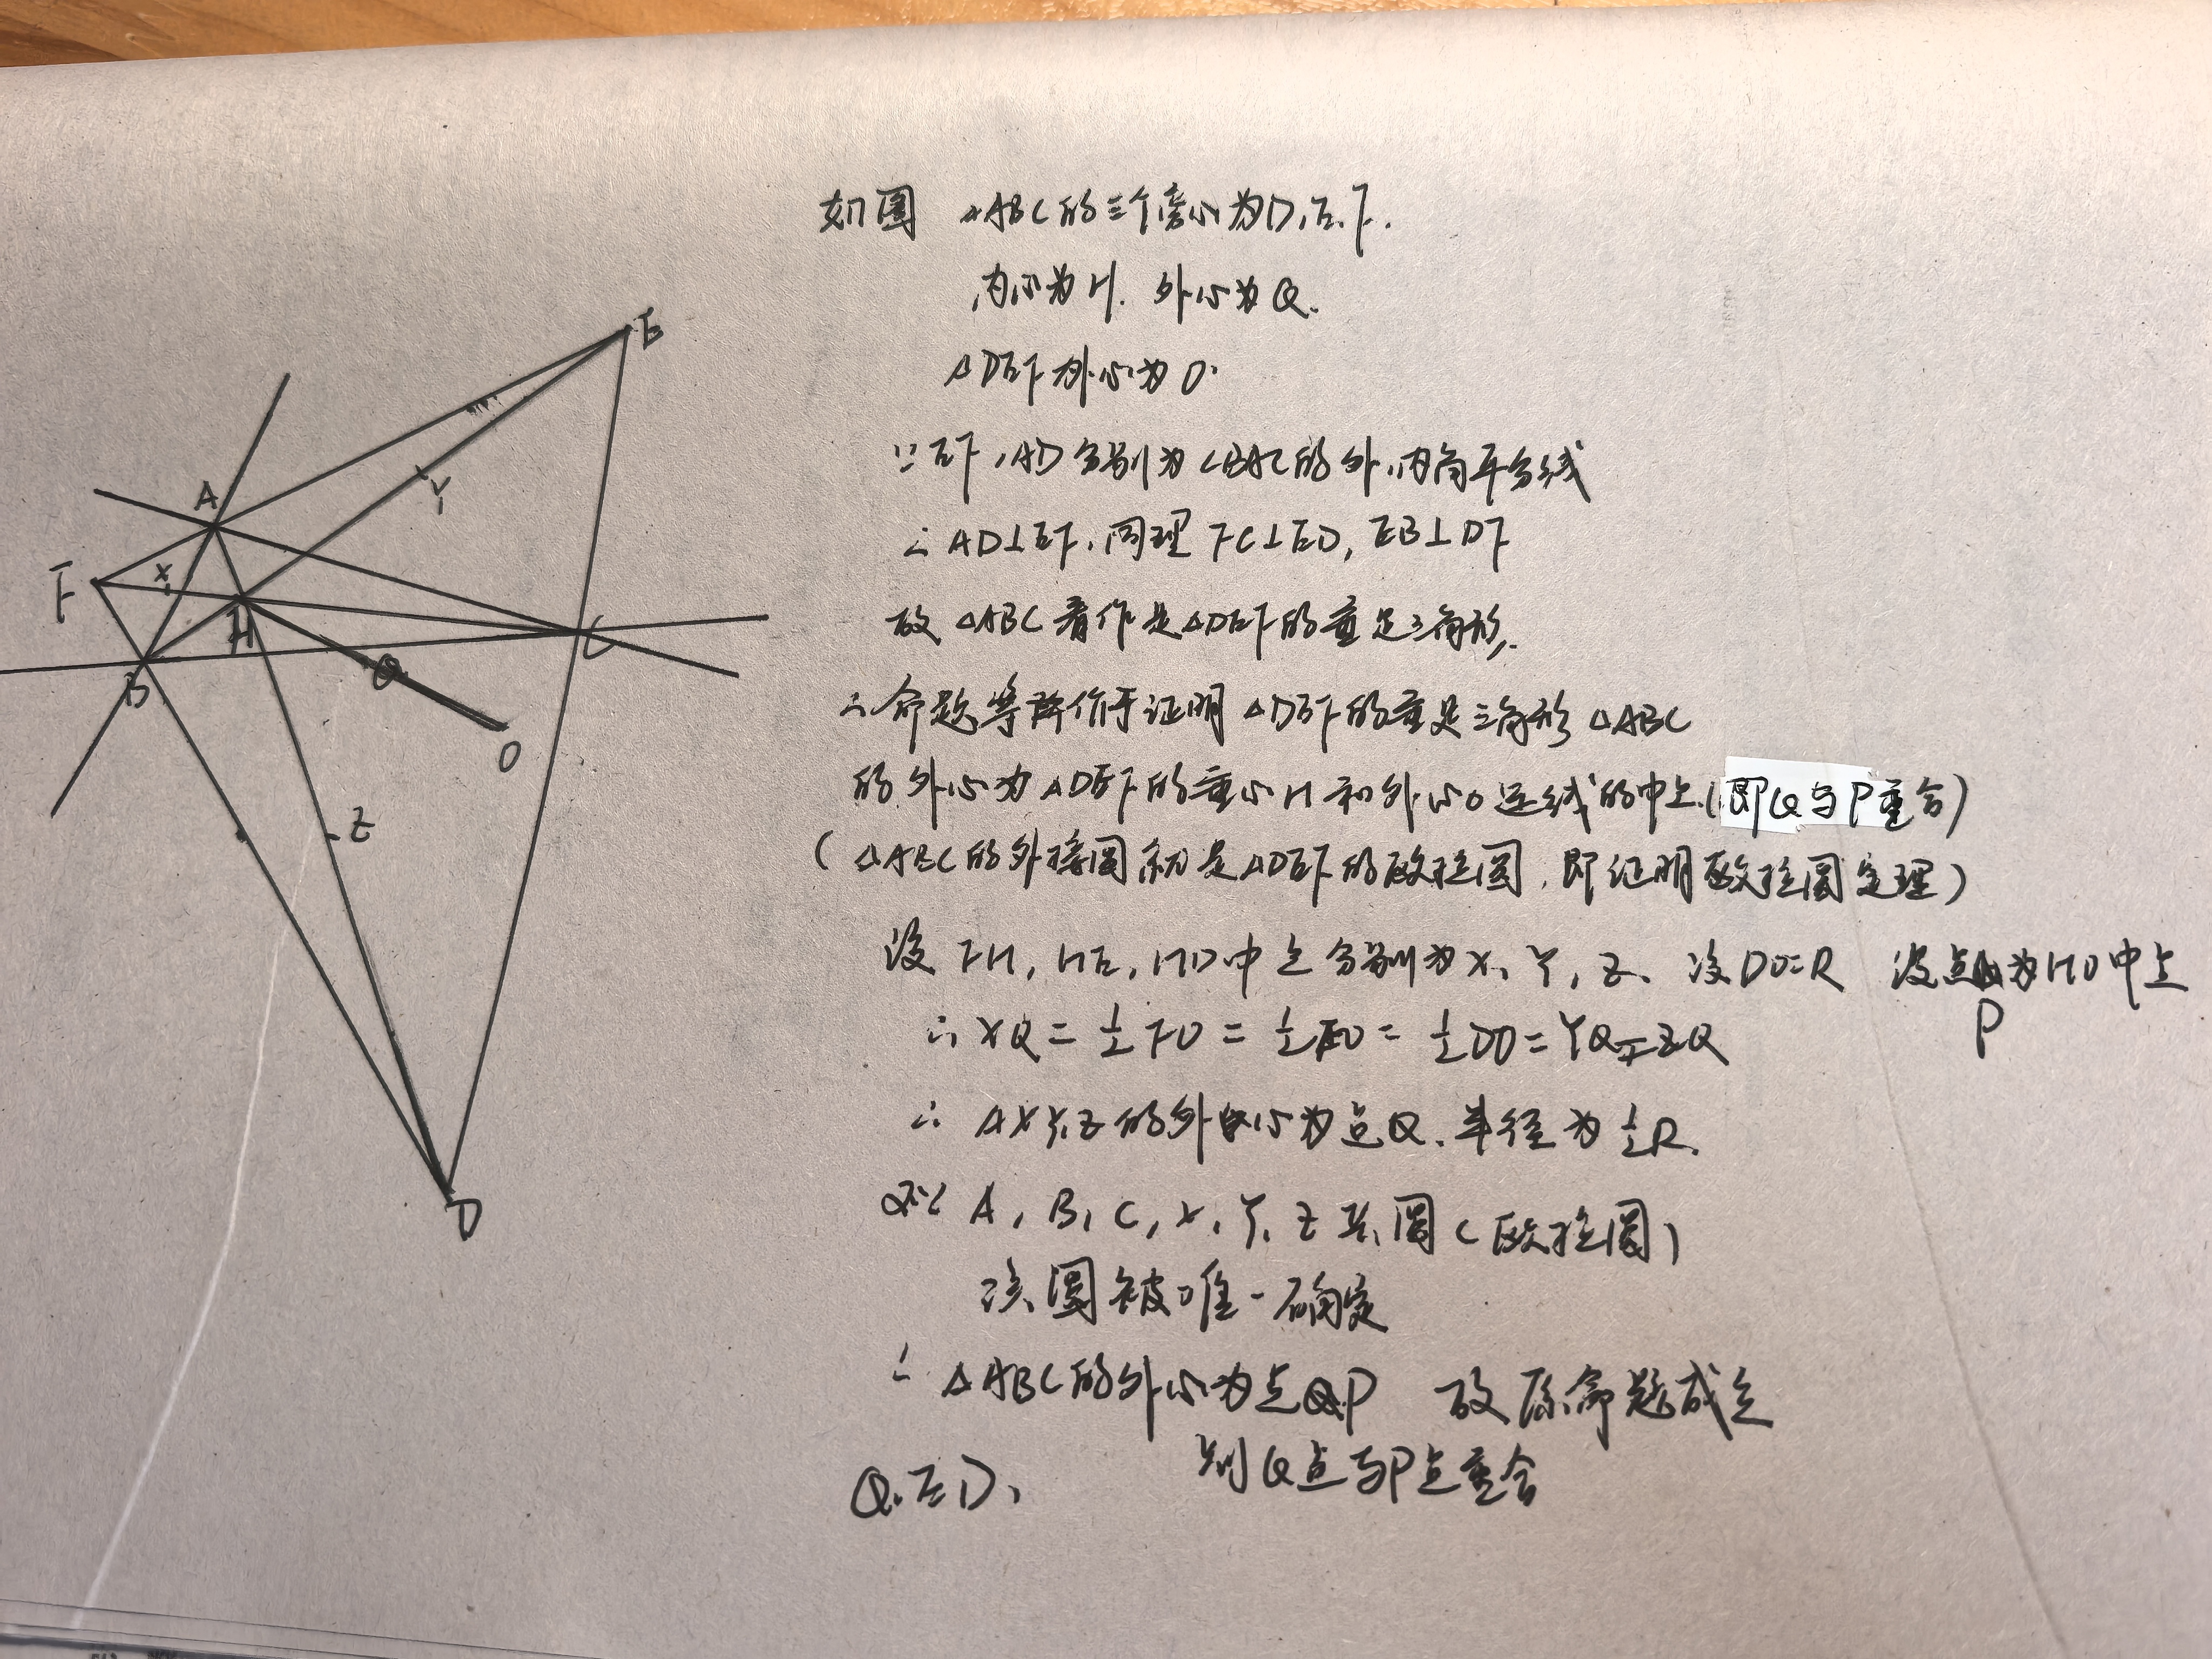 如图 △ABC的三个旁心为D,E,F.
内心为H. 外心为Q.
△DEF外心为O.
∵EF,AD分别为∠BAC的外,内角平分线
∴AD⊥EF,同理FC⊥ED, EB⊥DF
故△ABC看作是△DEF的垂足三角形.
∴命题等价于证明△DEF的垂足三角形△ABC
的外心为△DEF的垂心H和外心O连线的中点(即Q与P重合)
(△ABC的外接圆就是△DEF的欧拉圆,即证明欧拉圆定理)
设FH,HE,HD中点分别为X,Y,Z. 设DO=R 设点为HO中点
P
∴XQ=½FO=½EO=½DO=YQ=ZQ
∴△XYZ的外心为点Q.半径为½R.
又∵A,B,C,X,Y,Z共圆(欧拉圆)
该圆被唯一确定
∴△ABC的外心为点P 故原命题成立
则Q点与P点重合
Q.E.D.
E
A
Y
F
X
H
C
B
Q
O
Z
D